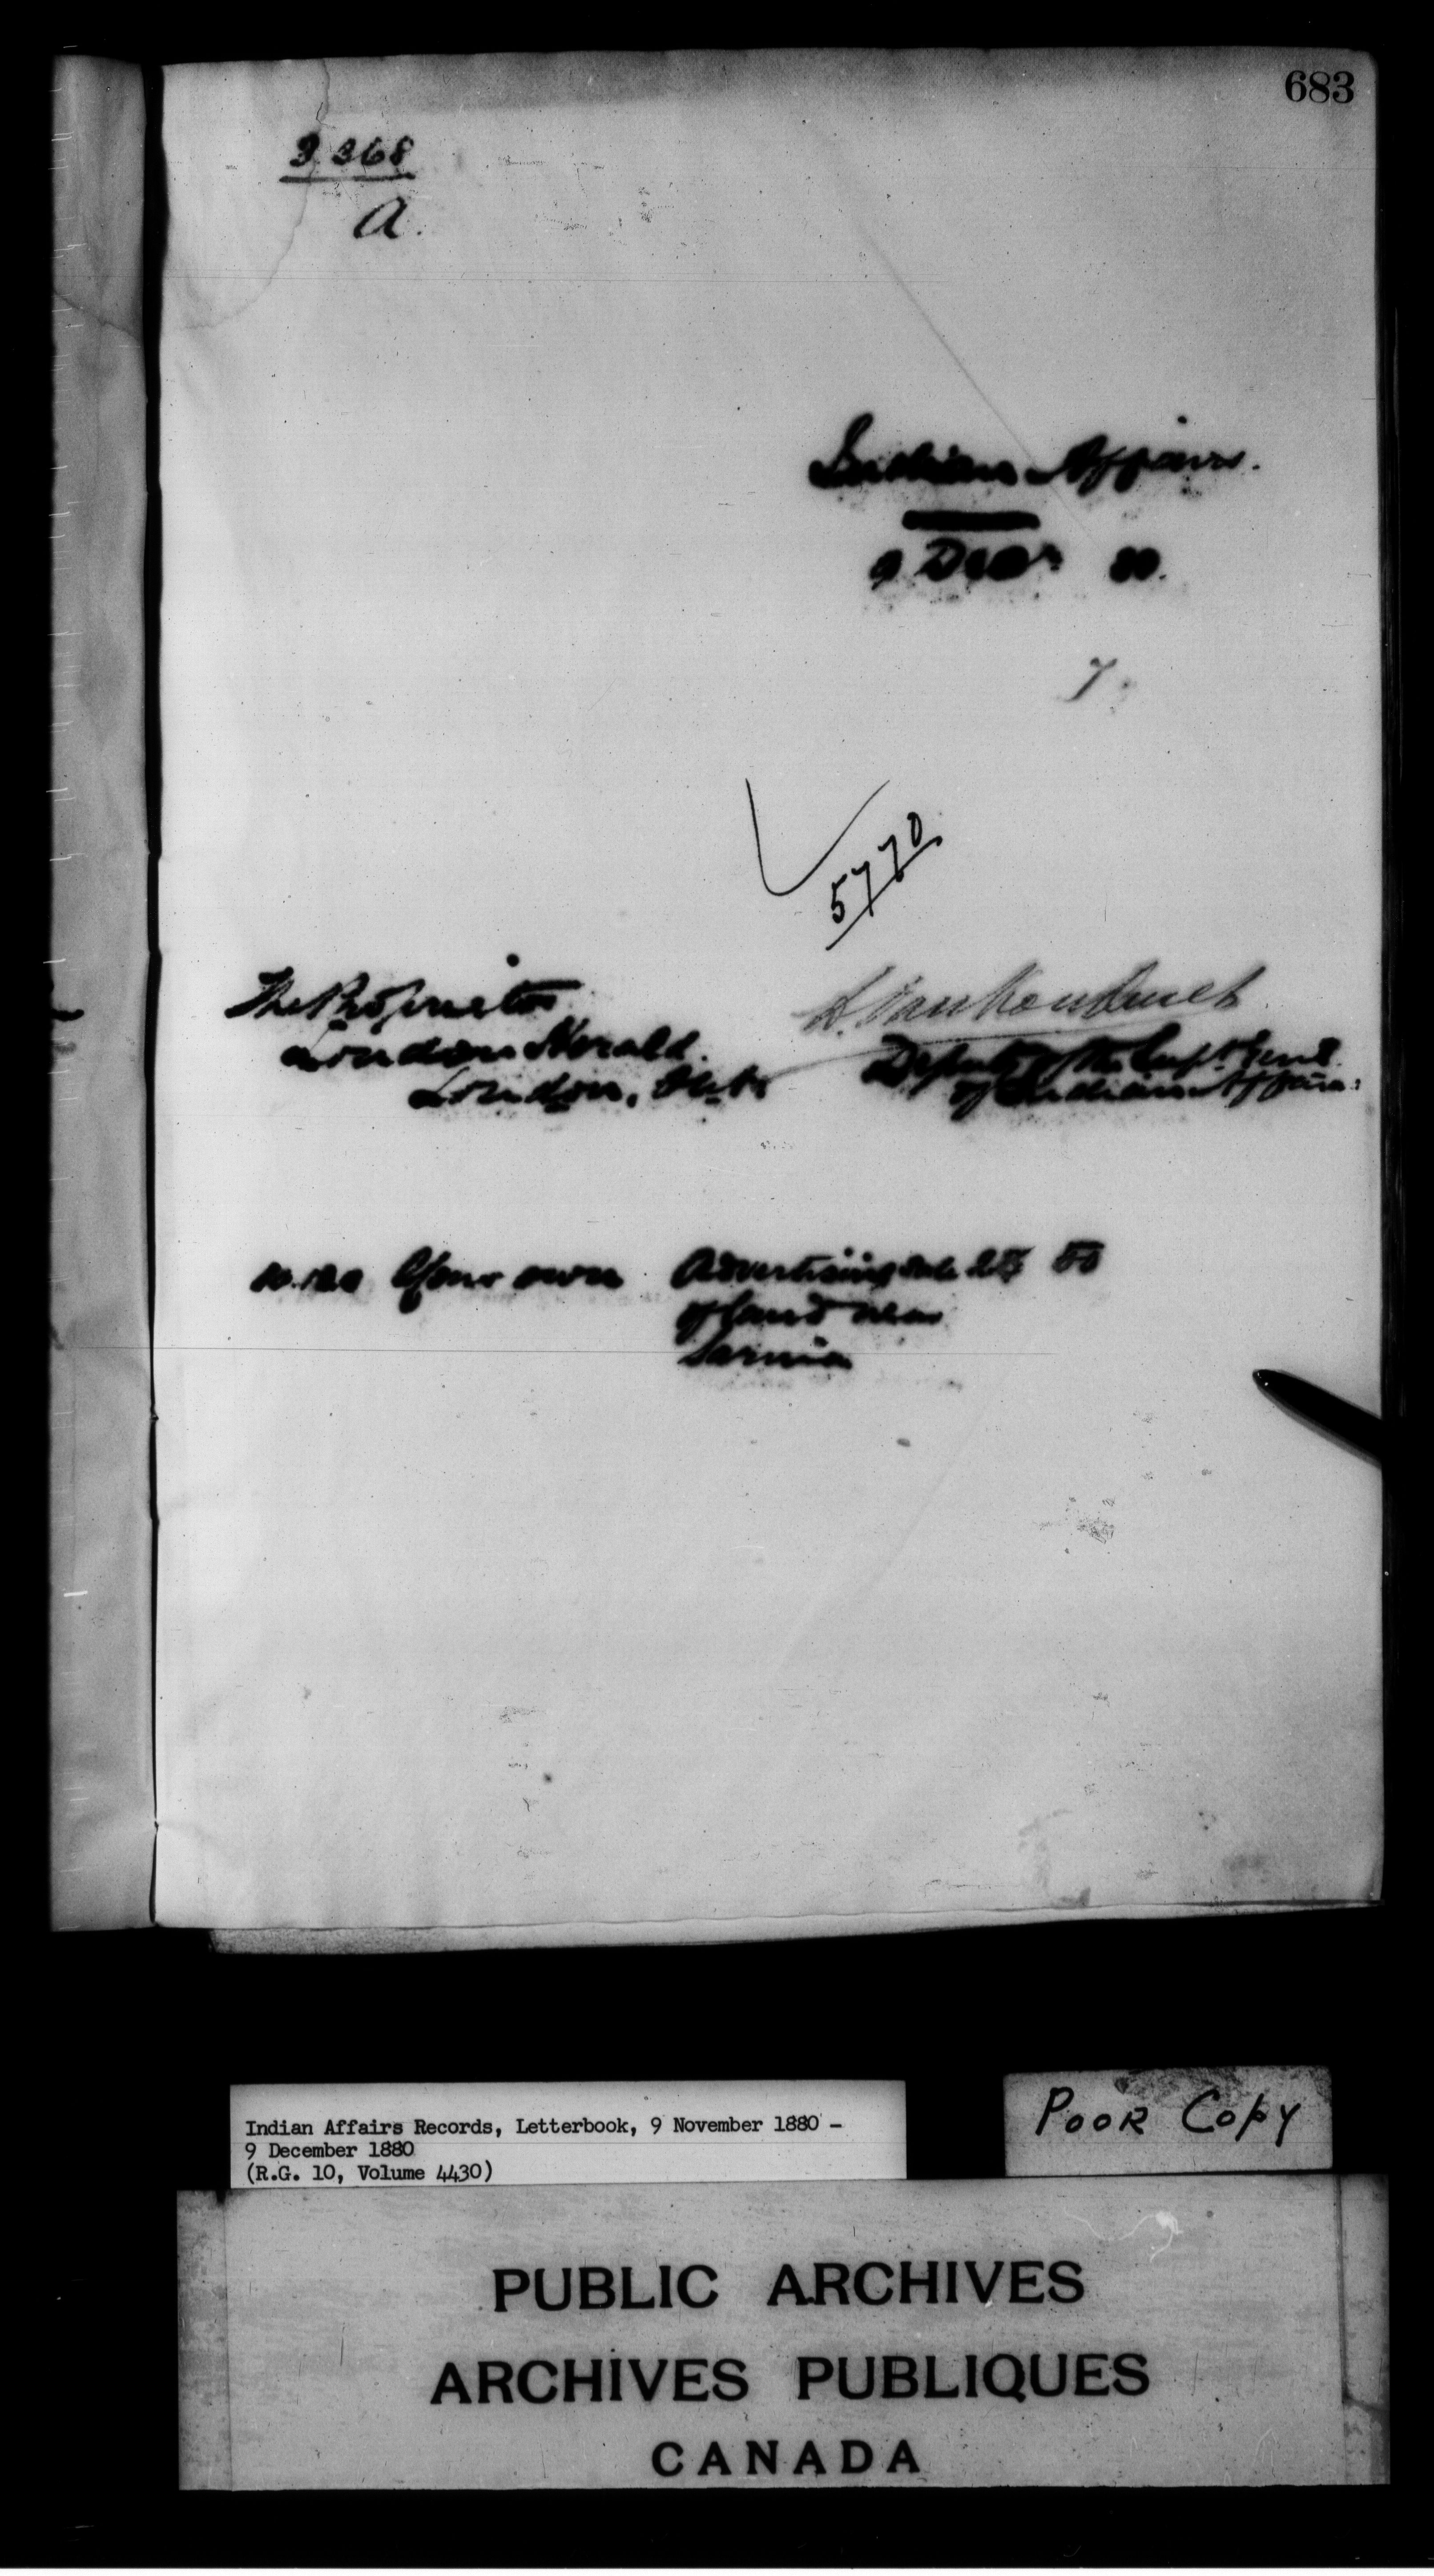 683
3368
A.
Indian Affairs.
9 Decr 80.
7.
5770
The Proprietor
London Herald.
London, Ont.
L. Vankoughnet
Deputy of the Supt Genl
of Indian Affairs
Your own Advertising sale
of land near
Sarnia
Indian Affairs Records, Letterbook, 9 November 1880 -
9 December 1880
(R.G. 10, Volume 4430)
POOR COPY
PUBLIC ARCHIVES
ARCHIVES PUBLIQUES
CANADA